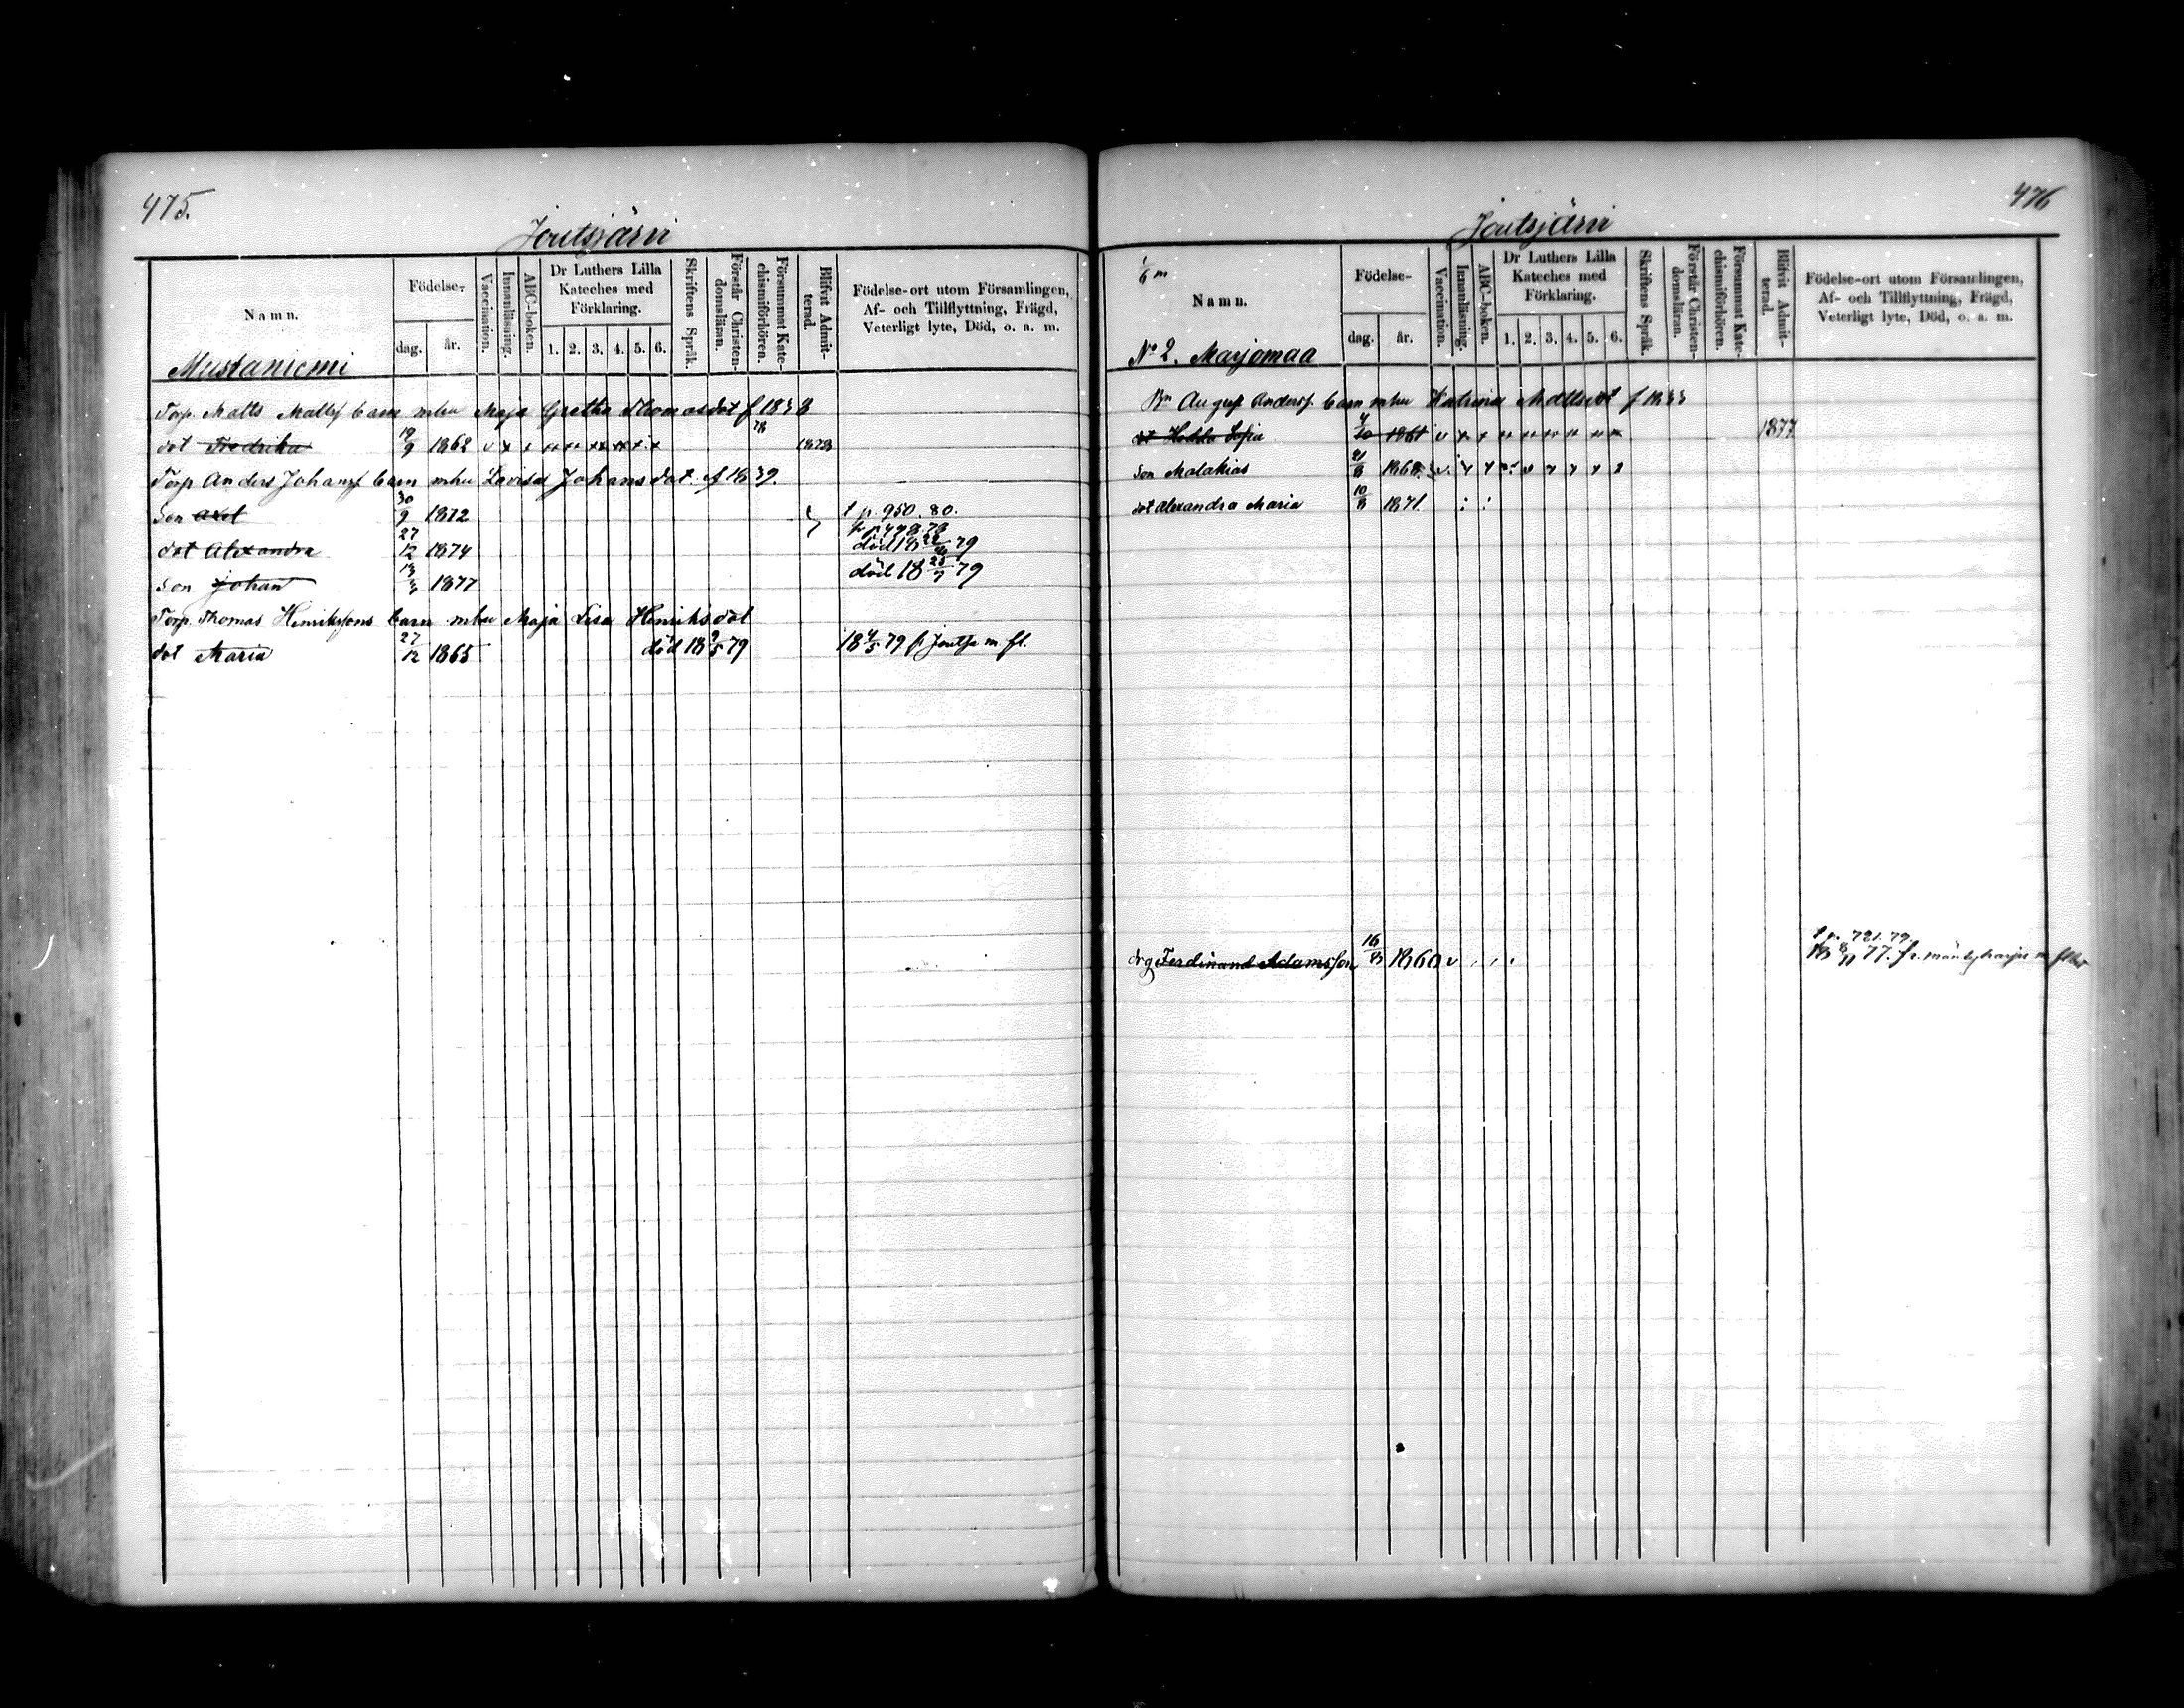 475.
Joutsjärvi
Namn.
Födelse-
dag.
år.
Vaccination.
Innanläsning.
ABC-boken.
Dr Luthers Lilla Kateches med Förklaring.
1. 2. 3. 4. 5. 6.
Skriftens Språk.
Förstår Christendomsläran.
Försummat Katechismiförhören.
Blifvit Admitterad.
Födelse-ort utom Församlingen,
Af- och Tillflyttning, Frägd,
Veterligt lyte, Död, o. a. m.
Mustaniemi
Torp. Matts Mattsf barn mhu Maja Gretha Thomasdot f 1838
dot Fredrika 19/9 1862 v x x 78 1878
Torp Anders Johansf barn mhu Lovisa Johansdot f 1839.
Son Axel 30/9 1872 t p. 950. 80.
dot Alexandra 27/12 1874 död 18 79
Son Johan 1877 död 18 79
Torp. Thomas Henrikssons barn mhu Maja Lisa Henriksdot
dot Maria 27/12 1865 död 18 9/5 79 18 4/5 79 f. Joutsa m fl.
476
Joutsjärvi
1/6 m
Namn.
Födelse-
dag.
år.
Vaccination.
Innanläsning.
ABC-boken.
Dr Luthers Lilla
Kateches med
Förklaring.
1. 2. 3. 4. 5. 6.
Skriftens Språk.
Förstår Christendomsläran.
Försummat Katechismiförhören.
Blifvit Admitterad.
Födelse-ort utom Församlingen,
Af- och Tillflyttning, Frägd,
Veterligt lyte, Död, o. a. m.
No 2. Marjomaa
Bn August Andersf. barn mhu Katrina Mattsdot f 1833
dot Hedda Sofia 4/10 1861 1877
Son Malakias 21/8 1868
dot Alexandra Maria 10/8 1871
drg Ferdinand Adamsson 16/8 1860 v
t p. 721. 79
18 77. fr. mäntyharju m